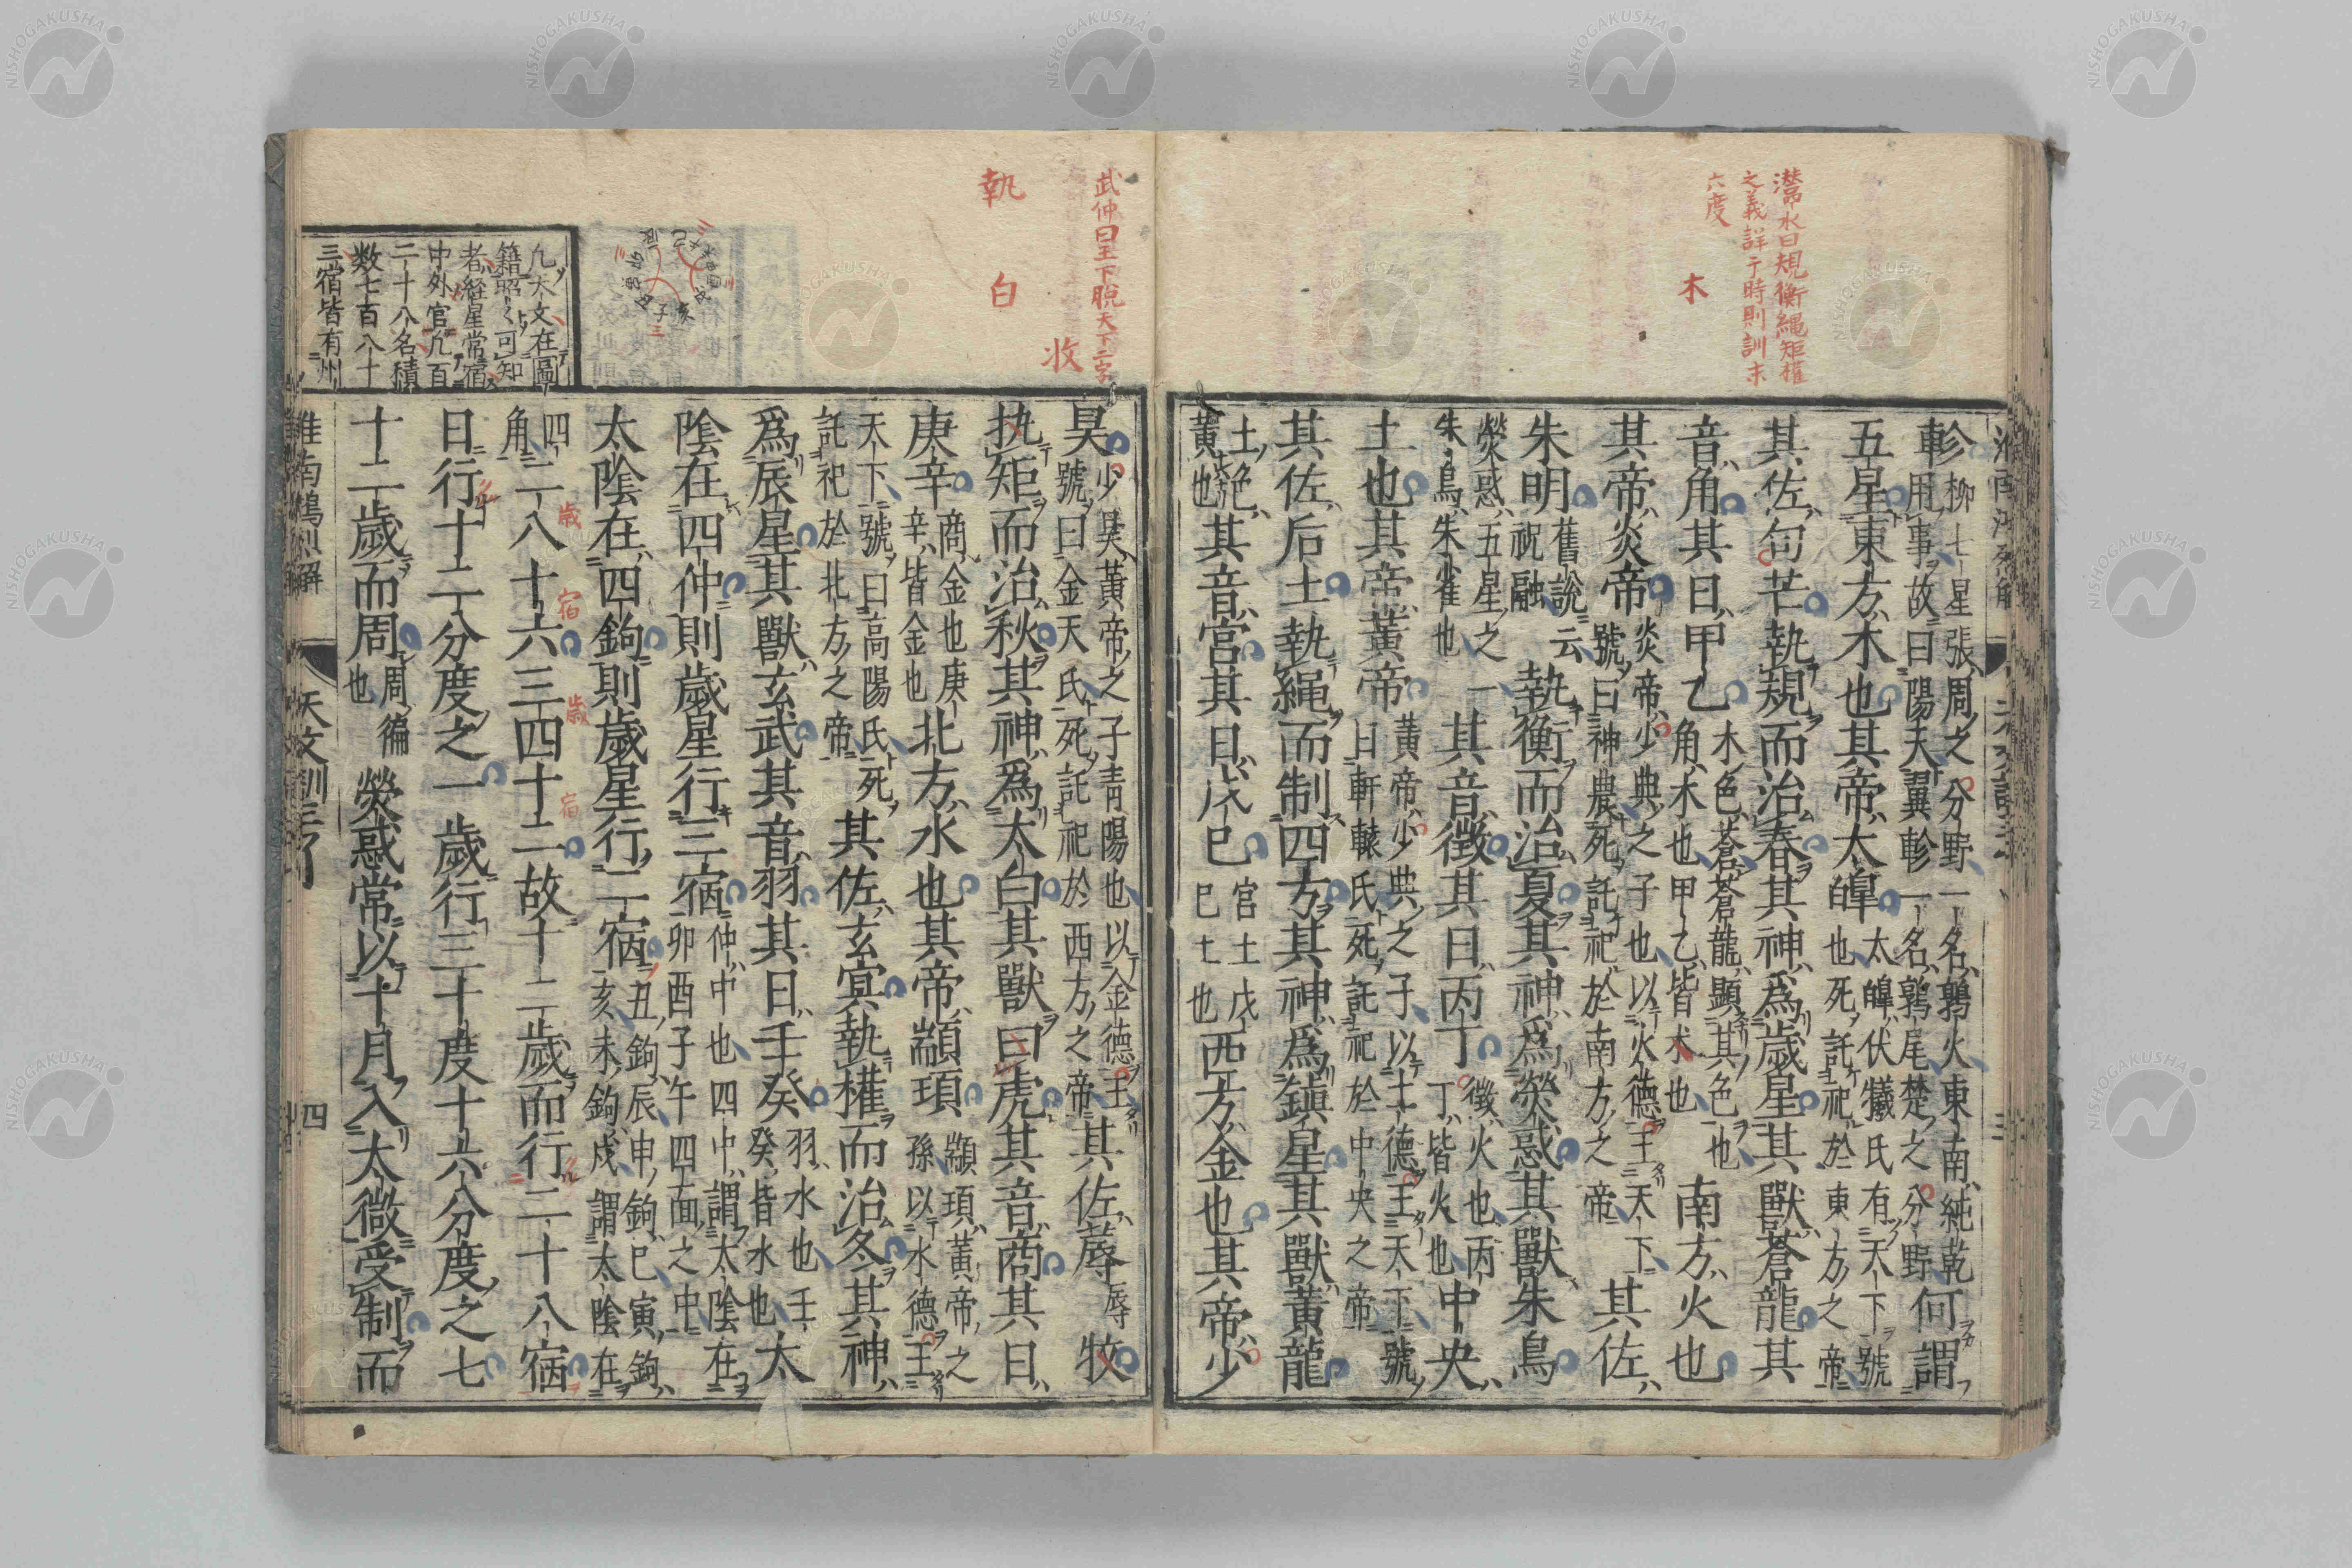 瀯水曰規衡繩矩權
之義詳于時則訓末
六度
木
軫柳七星張周之分野一名鶉火東南純乾
用事故曰陽天翼軫一名鶉尾楚之分野何謂
五星東方木也其帝太皥太皥伏犧氏有天下號
也死託祀於東方之帝
其佐句芒執規而治春其神爲歲星其獸蒼龍其
音角其日甲乙木色蒼蒼龍顯其色也
角木也甲乙皆木也南方火也
其帝炎帝炎帝少典之子也以火德王天下
號曰神農死託祀於南方之帝其佐
朱明舊說云
祝融執衡而治夏其神爲熒惑其獸朱鳥
熒惑五星之一
朱鳥朱雀也其音徵其日丙丁徵火也丙
丁皆火也中央
土也其帝黃帝黃帝少典之子以土德王天下號
曰軒轅氏死託祀於中央之帝
其佐后土執繩而制四方其神爲鎮星其獸黃龍
土色
黃也其音宮其日戊巳宮土戊
巳土也西方金也其帝少
武仲曰王下脫天下二字
收
執
白
昊少昊黃帝之子青陽也以金德王
號曰金天氏死託祀於西方之帝其佐蓐辱牧
执矩而治秋其神爲太白其獸曰虎其音商其日
庚辛商金也庚
辛皆金也北方水也其帝顓頊顓頊黃帝之
孫以水德王
天下號曰高陽氏死
託祀於北方之帝其佐玄冥執權而治冬其神
爲辰星其獸玄武其音羽其日壬癸羽水也壬
癸皆水也太
陰在四仲則歲星行三宿仲中也四中謂太陰在
卯酉子午四面之中
太陰在四鉤則歲星行二宿丑鉤辰申鉤巳寅鉤
亥未鉤戍謂太陰在
四
角二八十六三四十二故十二歲而行二十八宿
歲
宿
歲
宿
日行十二分度之一歲行三十度十六分度之七
十二歲而周周徧
也熒惑常以十月入太微受制而
凡天文在圖
籍昭〻可知
者経星常宿
中外官凡百
二十八名積
数七百八十
三宿皆有州
淮南鴻烈解
天文訓三
四